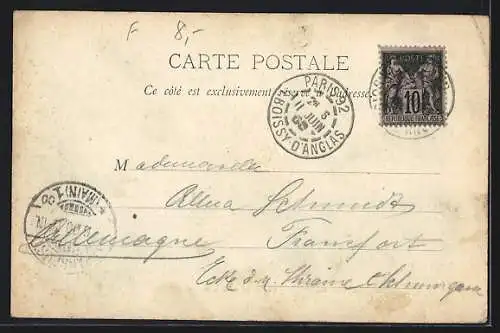 F 8,-
CARTE POSTALE
Ce côté est exclusivement réservé à l'adresse
PARIS 92
BOISSY-D'ANGLAS
11 JUIN
POSTES
10
REPUBLIQUE FRANÇAISE
Mademoiselle
Alma Schmidt
(MAIN) 1
Allemagne Francfort
Ecke d.